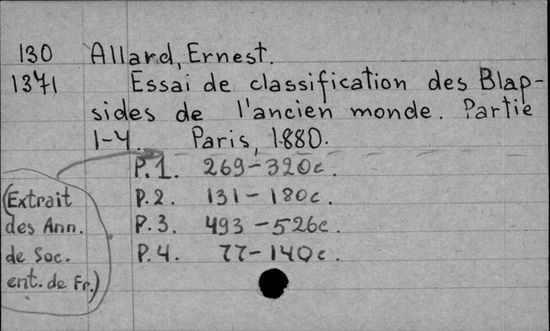 130 Allard, Ernest.
1371 Essai de classification des Blap-
sides de l'ancien monde. Partie
1-4. Paris, 1880.
P.1. 269-320c.
(Extrait P.2. 131-180c.
des Ann. P.3. 493-526c.
de Soc. P.4. 77-140c.
ent. de Fr.)